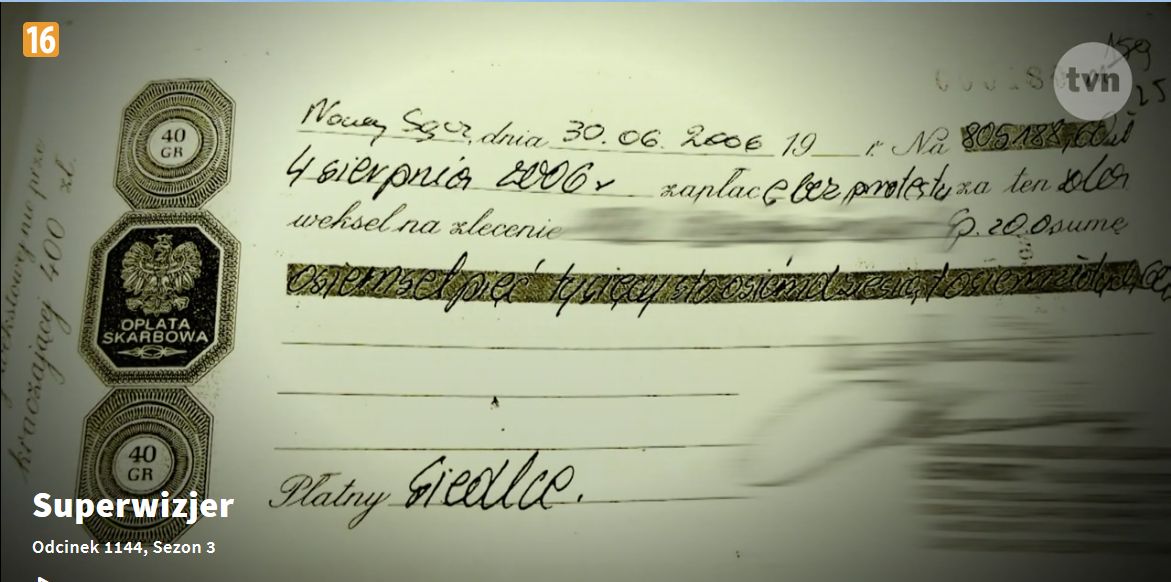 16
tvn
Nowy Sącz, dnia 30.06.2006 19 r. Na 805188,60 zł
4 sierpnia 2006 r zapłacę bez protestu za ten sola
weksel na zlecenie Sp. z o.o sumę
osiemset pięć tysięcy sto osiemdziesiąt osiem złotych
kraczającej 400 zł.
OPŁATA
SKARBOWA
40
GR
40
GR
Płatny Siedlce.
Superwizjer
Odcinek 1144, Sezon 3